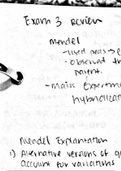 Exam 3 Review
Mendel
- used peas →
- observed th
parent.
- main experimen
hybridizati
Mendel Explanation
1) Alternative versions of g
account for variations